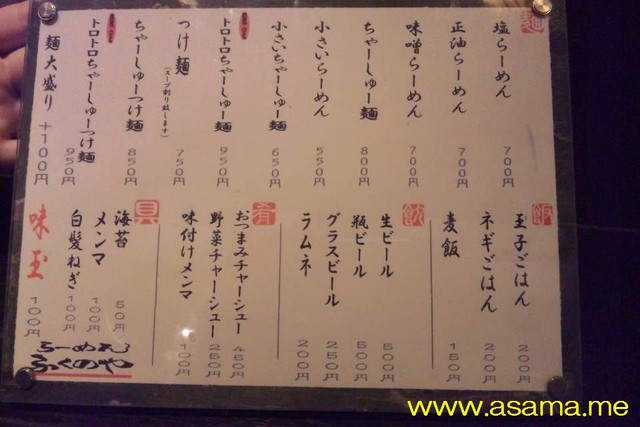 麺
塩らーめん 700円
正油らーめん 700円
味噌らーめん 700円
ちゃーしゅー麺 800円
小さいらーめん 550円
小さいちゃーしゅー麺 650円
トロトロちゃーしゅー麺 950円
つけ麺 (スープ割り致します) 750円
ちゃーしゅーつけ麺 850円
トロトロちゃーしゅーつけ麺 950円
麺大盛り +100円
飯
玉子ごはん 200円
ネギごはん 200円
麦飯 150円
飲
生ビール 500円
瓶ビール 500円
グラスビール 250円
ラムネ 200円
肴
おつまみチャーシュー 450円
野菜チャーシュー 250円
味付けメンマ 100円
具
海苔 50円
メンマ 100円
白髪ねぎ 100円
味玉 100円
らーめん
ふくのや
www.asama.me